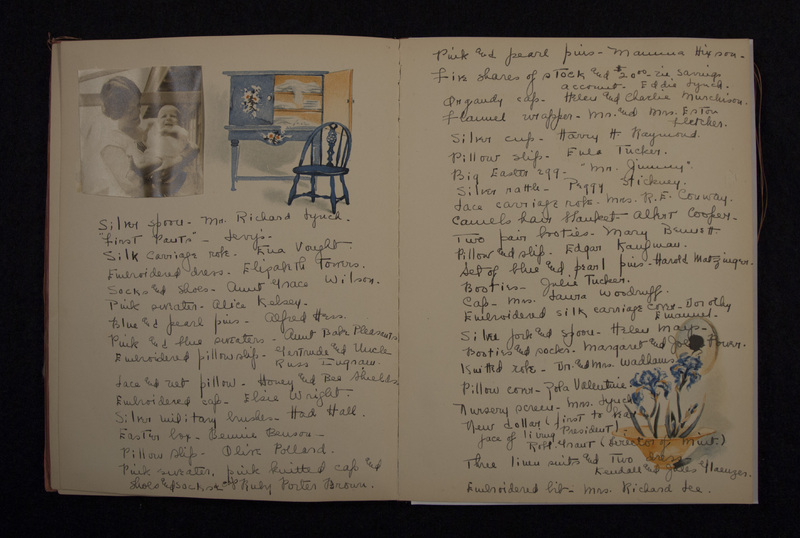 Silver spoon - Mr. Richard Lynch.
"First Pants" - Levy's.
Silk Carriage robe. Eua Vought.
Embroidered dress. Elizabeth Towers.
Socks and shoes - Aunt Grace Wilson.
Pink sweater. Alice Kelsey.
Blue and pearl pins - Alfred Hess.
Pink and blue sweaters - Aunt Babe Pleasants
Embroidered pillow slip. Gertrude and Uncle
Russ Ingram.
Lace and net pillow - Honey and Bee Shields
Embroidered cap - Elsie Wright.
Silver military brushes - Had Hall.
Easter box - Bennie Benson -
Pillow slip - Olive Pollard.
Pink sweater, pink knitted cap and
shoes and socks - Ruby Porter Brown.
Pink and pearl pins - Mamma Hixson -
Five shares of stock and $20.00 in savings
account. Eddie Lynch.
Organdy cap - Helen and Charlie Murchison.
Flannel wrapper - Mr. and Mrs. Eston
Fletcher.
Silver cup - Harry H. Raymond.
Pillow slip - Eula Tucker.
Big Easter egg - "Mr. Jimmy".
Silver rattle - Peggy Stickney.
Lace carriage robe. Mrs. R. E. Conway.
Camels hair blanket - Albert Cooper -
Two pair booties - Mary Bennett.
Pillow and slip. Edgar Kaufman.
Set of blue and pearl pins - Harold
Booties - Julie Tucker.
Cap - Mrs. Laura Woodruff.
Embroidered silk carriage cover - Dorothy
Emanuel.
Silver fork and spoon - Helen Mays -
Booties and socks. Margaret and
Knitted robe - Dr. and Mrs. Wadhams
Pillow cover - Rola Valentine
Nursery screen - Mrs. Lynch
New dollar (first to bear
face of living President)
Robt. Grant (Director of Mint.)
Three linen suits and two dress
Kendall and
Embroidered bib - Mrs. Richard Lee.